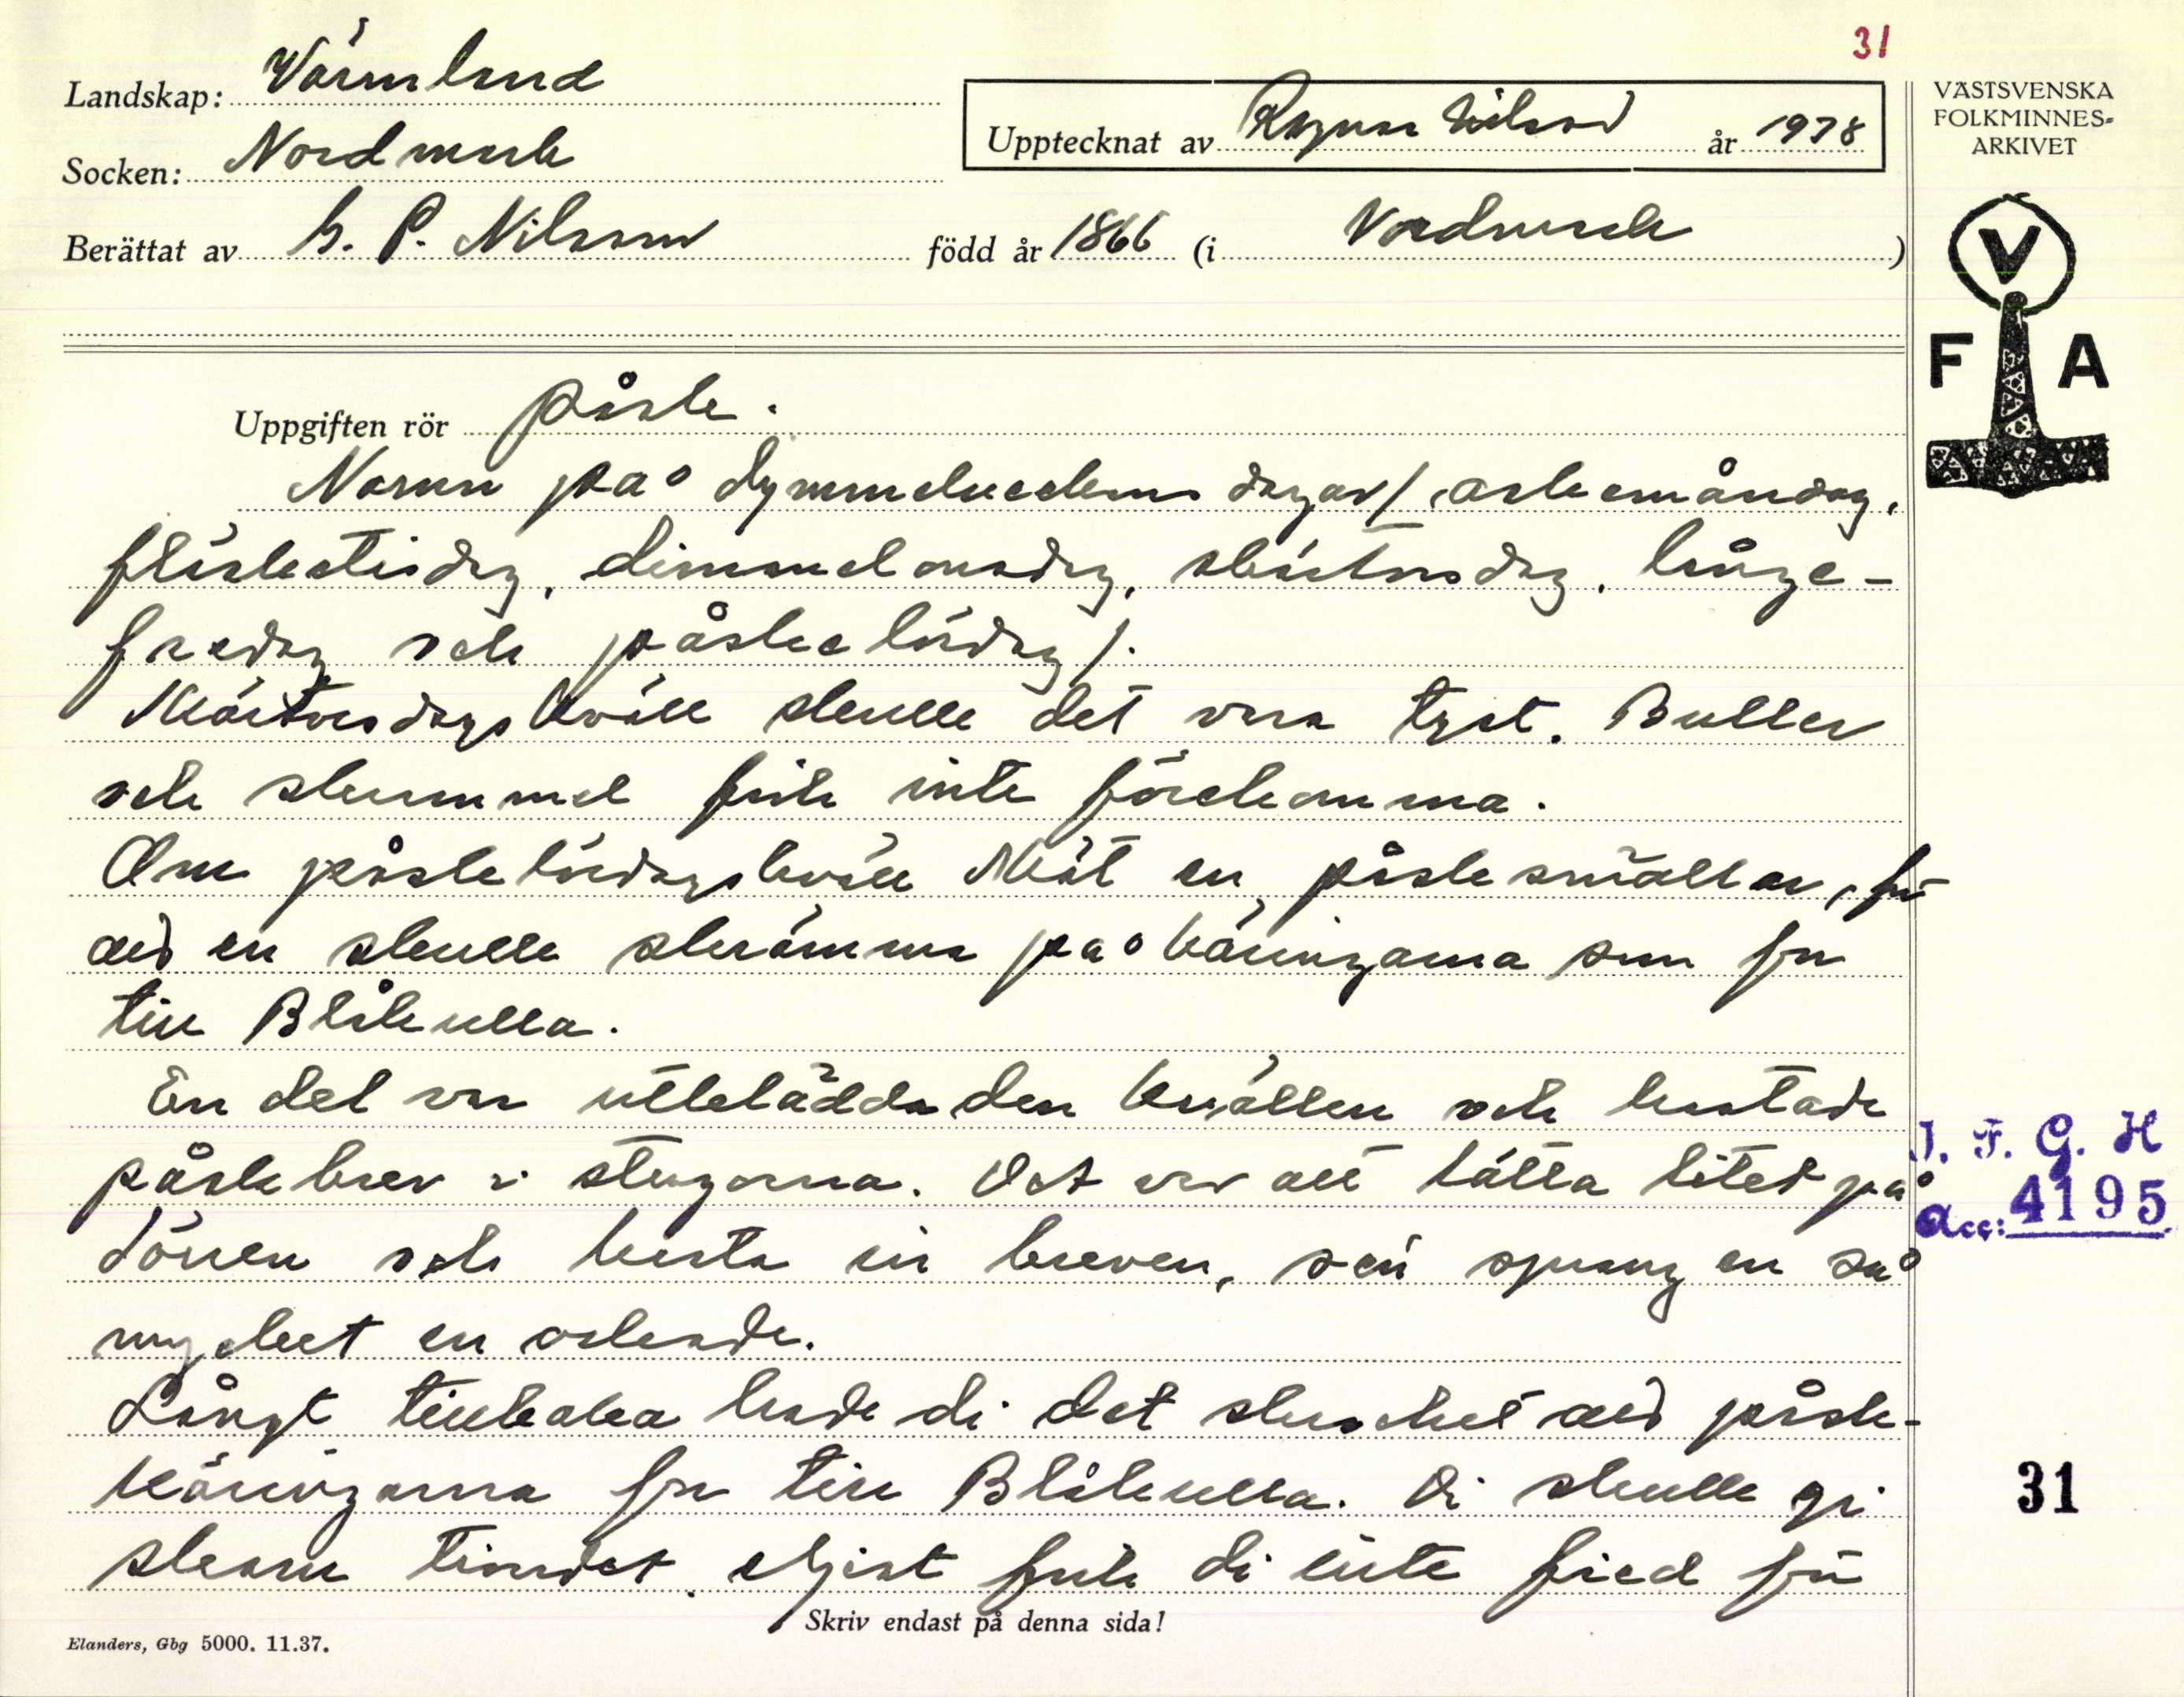 31
Landskap: Värmland
Socken: Nordmark
Upptecknat av Ragnar Nilsson år 1938
Berättat av G. P. Nilsson född år 1866 (i Nordmark)
VÄSTSVENSKA
FOLKMINNES-
ARKIVET
V
F A
Uppgiften rör påsk.
Namn på dymmelveckans dagar/askemåndag,
fläsketisdag, dimmelonsdag, skärtorsdag, långe-
fredag och påskelördag/.
Skärtorsdagskväll skulle det vara tyst. Buller
och skrammel fick inte förekomma.
Om påskelördagskväll sköt en påskesmällar, för
att en skulle skrämma på käringarna som for
till Blåkulla.
En del var utklädda den kvällen och kastade
påskbrev i stugorna. Det var att lätta litet på
dörren och kasta in breven, sen sprang en så
mycket en orkade.
Långt tillbaka hade di det skrocket att påsk-
käringarna for till Blåkulla. Di skulle ge
skam tiondet. Eljest fick di inte fred för
Skriv endast på denna sida!
Elanders, Gbg 5000. 11.37.
I. F. G. H
Acc: 4195
31